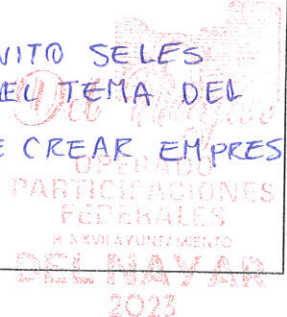 VITO SELES
EL TEMA DEL
E CREAR EMPRES
OPERADO
PARTICIPACIONES
FEDERALES
H. XXVII AYUNTAMIENTO
DEL NAYAR
2023